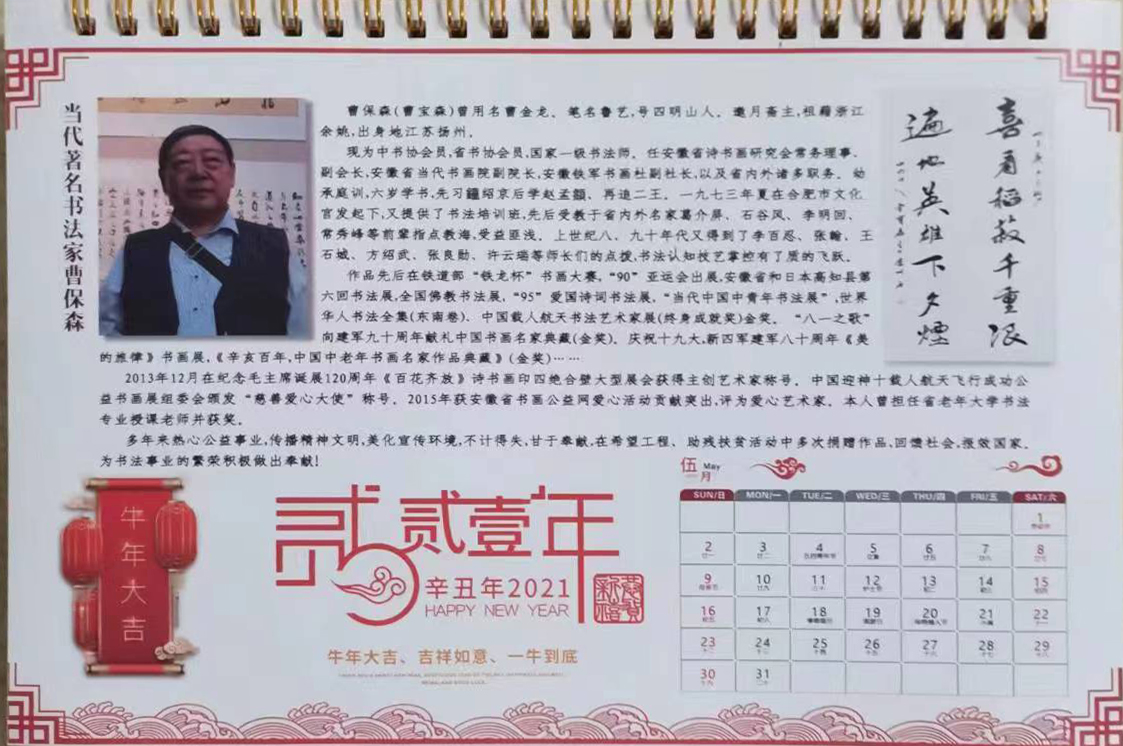 当代著名书法家曹保森
曹保森(曹宝森)曾用名曹金龙、笔名鲁艺,号四明山人、邀月斋主,祖籍浙江
余姚,出身地江苏扬州。
现为中书协会员,省书协会员,国家一级书法师。任安徽省诗书画研究会常务理事、
副会长,安徽省当代书画院副院长,安徽铁军书画社副社长,以及省内外诸多职务。幼
承庭训,六岁学书,先习鍾绍京后学赵孟頫、再追二王。一九七三年夏在合肥市文化
宫发起下,又提供了书法培训班,先后受教于省内外名家葛介屏、石谷风、李明回、
常秀峰等前辈指点教诲,受益匪浅。上世纪八、九十年代又得到了李百忍、张翰、王
石城、方绍武、张良勋、许云瑞等师长们的点拨,书法认知技艺掌控有了质的飞跃。
作品先后在铁道部“铁龙杯”书画大赛、“90”亚运会出展,安徽省和日本高知县第
六回书法展,全国佛教书法展、“95”爱国诗词书法展、“当代中国中青年书法展”,世界
华人书法全集(东南卷)、中国载人航天书法艺术家展(终身成就奖)金奖。“八一之歌”
向建军九十周年献礼中国书画名家典藏(金奖)。庆祝十九大,新四军建军八十周年《美
的旅律》书画展,《辛亥百年,中国中老年书画名家作品典藏》(金奖)……
2013年12月在纪念毛主席诞展120周年《百花齐放》诗书画印四绝合壁大型展会获得主创艺术家称号。中国迎神十载人航天飞行成功公
益书画展组委会颁发“慈善爱心大使”称号。2015年获安徽省书画公益网爱心活动贡献突出,评为爱心艺术家。本人曾担任省老年大学书法
专业授课老师并获奖。
多年来热心公益事业,传播精神文明,美化宣传环境,不计得失,甘于奉献,在希望工程、助残扶贫活动中多次捐赠作品,回馈社会,报效国家。
为书法事业的繁荣积极做出奉献!
喜看稻菽千重浪
遍地英雄下夕煙
牛年大吉
贰贰壹年
辛丑年2021
HAPPY NEW YEAR
恭贺新禧
牛年大吉、吉祥如意、一牛到底
伍月 May
SUN/日 MON/一 TUE/二 WED/三 THU/四 FRI/五 SAT/六
1
2 3 4 5 6 7 8
9 10 11 12 13 14 15
16 17 18 19 20 21 22
23 24 25 26 27 28 29
30 31